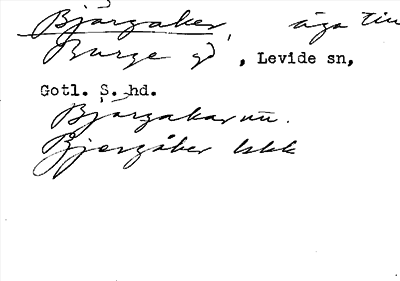 Bjärgaker, äga till
Burge gd, Levide sn,
Gotl. S. hd.
Bjärgakar nu.
Bjergåker lskk